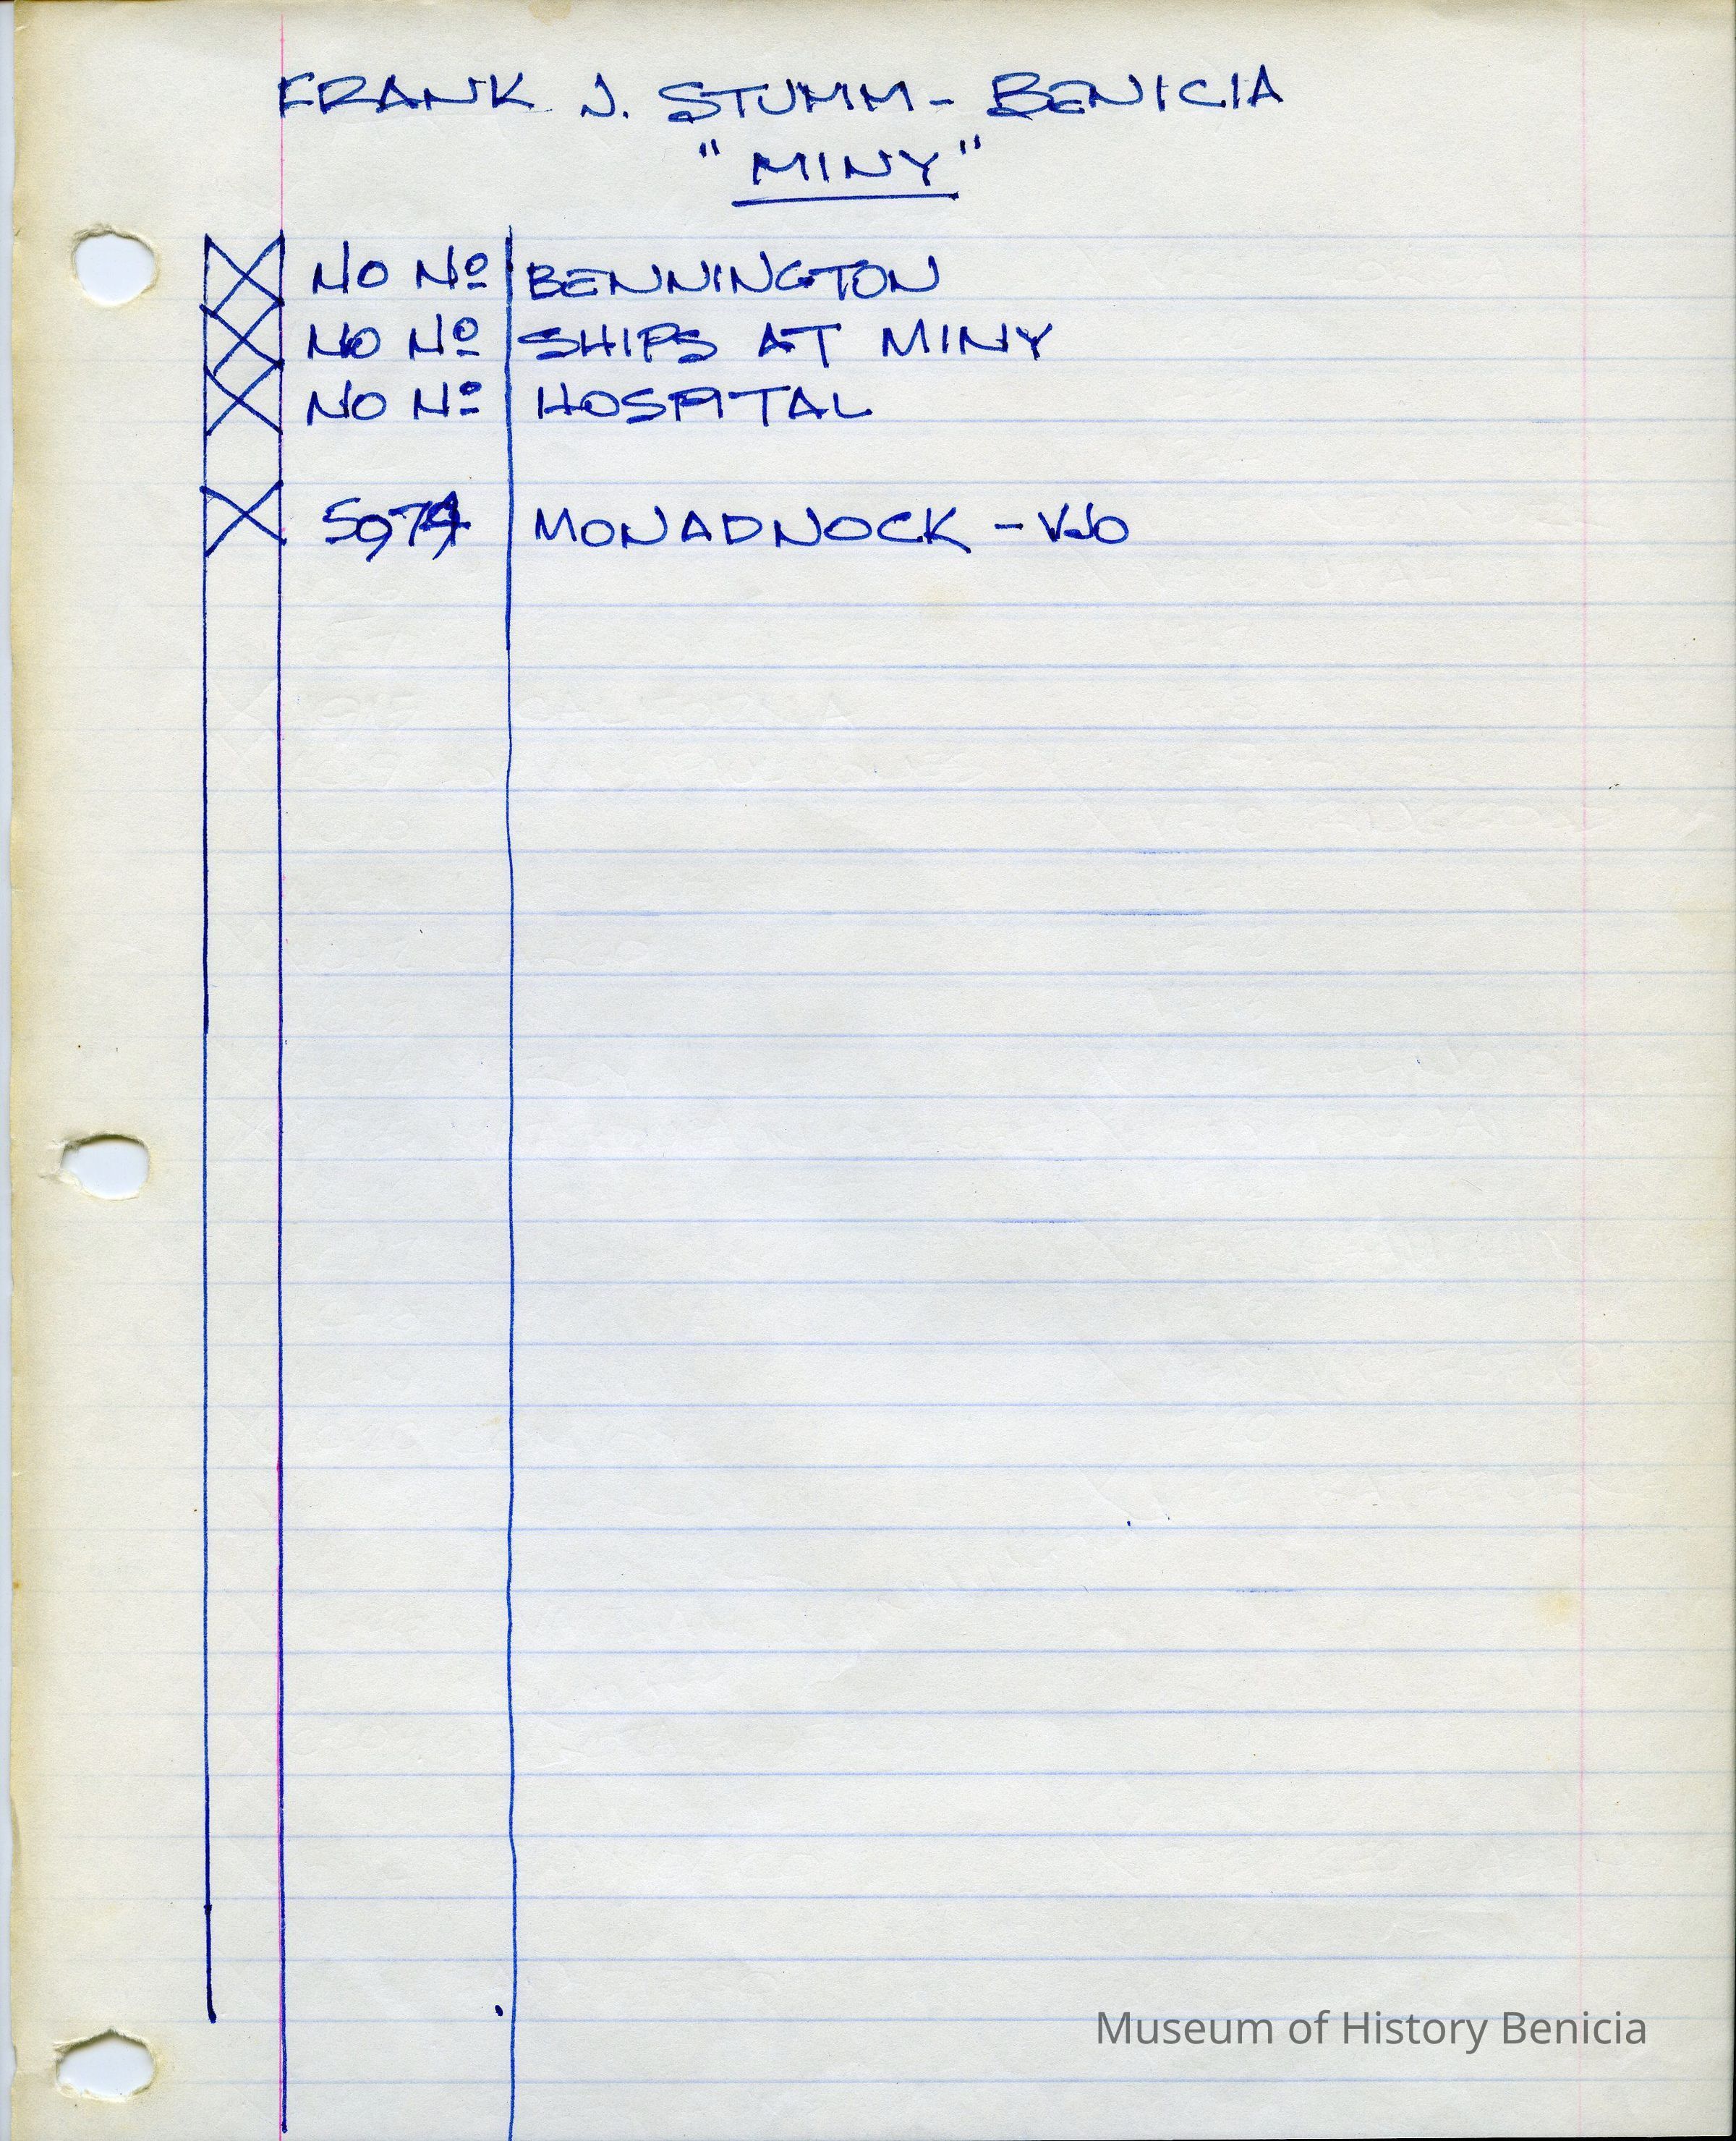 FRANK J. STUMM - BENICIA
"MINY"
NO Nº BENNINGTON
NO Nº SHIPS AT MINY
NO Nº HOSPITAL
MONADNOCK - VJO
Museum of History Benicia